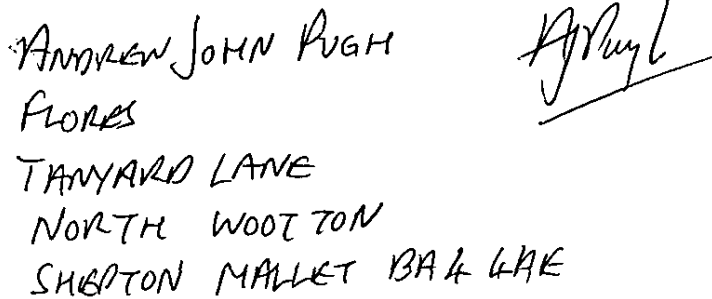 ANDREW JOHN PUGH
FLORES
TANYARD LANE
NORTH WOOTTON
SHEPTON MALLET BA4 4AE
AJPugh